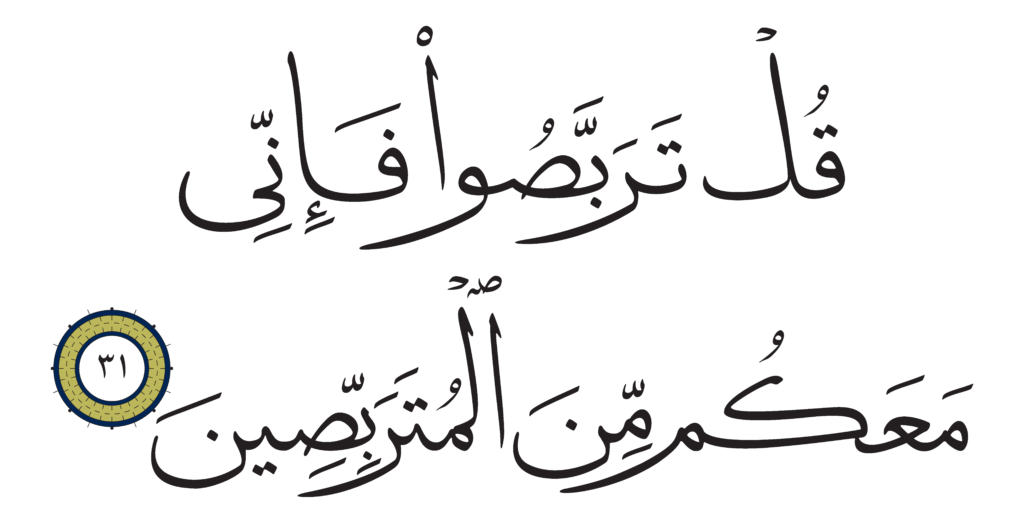 قُلۡ تَرَبَّصُواْ فَإِنِّى
مَعَكُم مِّنَ ٱلۡمُتَرَبِّصِينَ ٣١